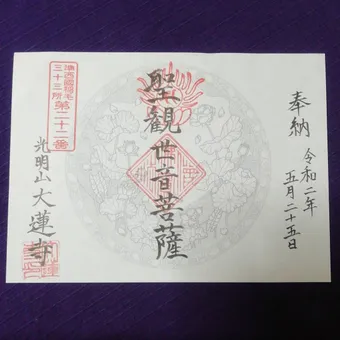 奉納
令和二年
五月二十五日
聖観世音菩薩
準西國稲毛
三十三所
第二十二番
光明山 大蓮寺